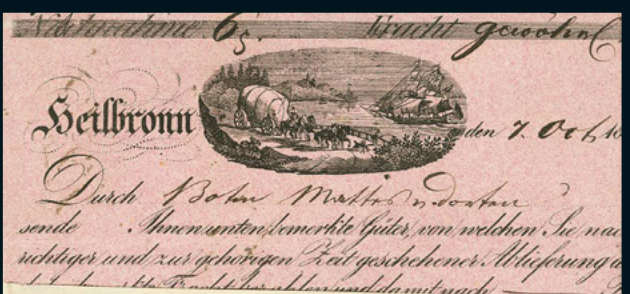 Nachnahme 6 s. Fracht gewöhnl
Heilbronn den 7. Oct 18
Durch Boten Mattes v. dorten
sende Ihnen unten bemerkte Güter, von welchen Sie nac
richtiger und zur gehörigen Zeit geschehener Ablieferung
Fracht bezahlen und damit nach